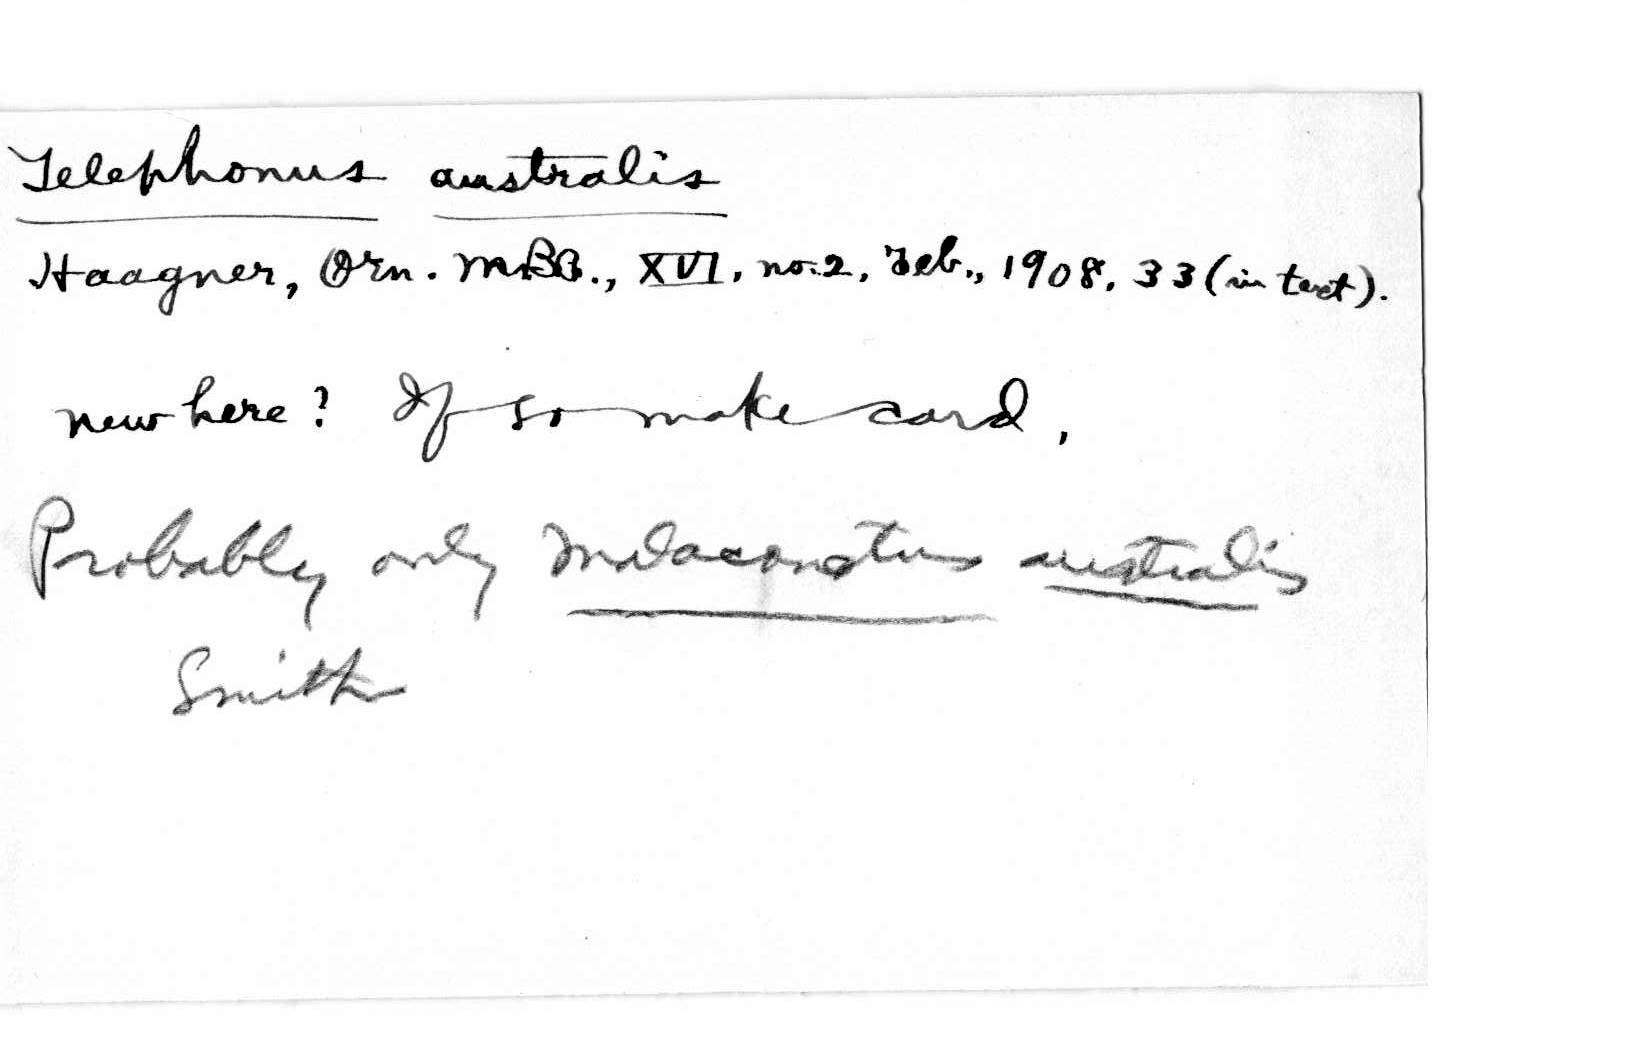 Telephonus australis
Haagner, Orn. MBB., XVI, no. 2, Feb., 1908, 33 (in text).
new here? If so make card,
Probably only Malaconotus australis
Smith